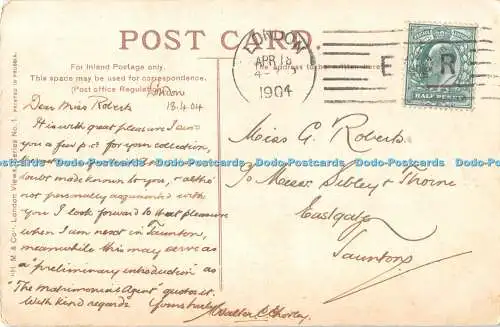 POST CARD.
For Inland Postage only.
This space may be used for correspondence.
(Post office Regulation).
The address to be written here
LONDON
APR 18
1904
E R
HALF PENNY
London
18.4.04
Dear Miss Roberts
It is with great pleasure I send
you a few p.c for your collection,
doubt made known to you, & altho'
not personally acquainted with
you I look forward to that pleasure
when I am next in Taunton,
meanwhile this may serve as
a "preliminary introduction" as
"The Matrimonial Agent" quotes it.
With kind regards Yours truly
Miss G. Roberts
c/o Messrs Sibley & Thorne
Eastgate
Taunton
H. M. & Co.'s London Views, Series No. 1. PRINTED IN PRUSSIA.
Dodo-Postcards Dodo-Postcards Dodo-Postcards Dodo-Postcards Dodo-Postcards